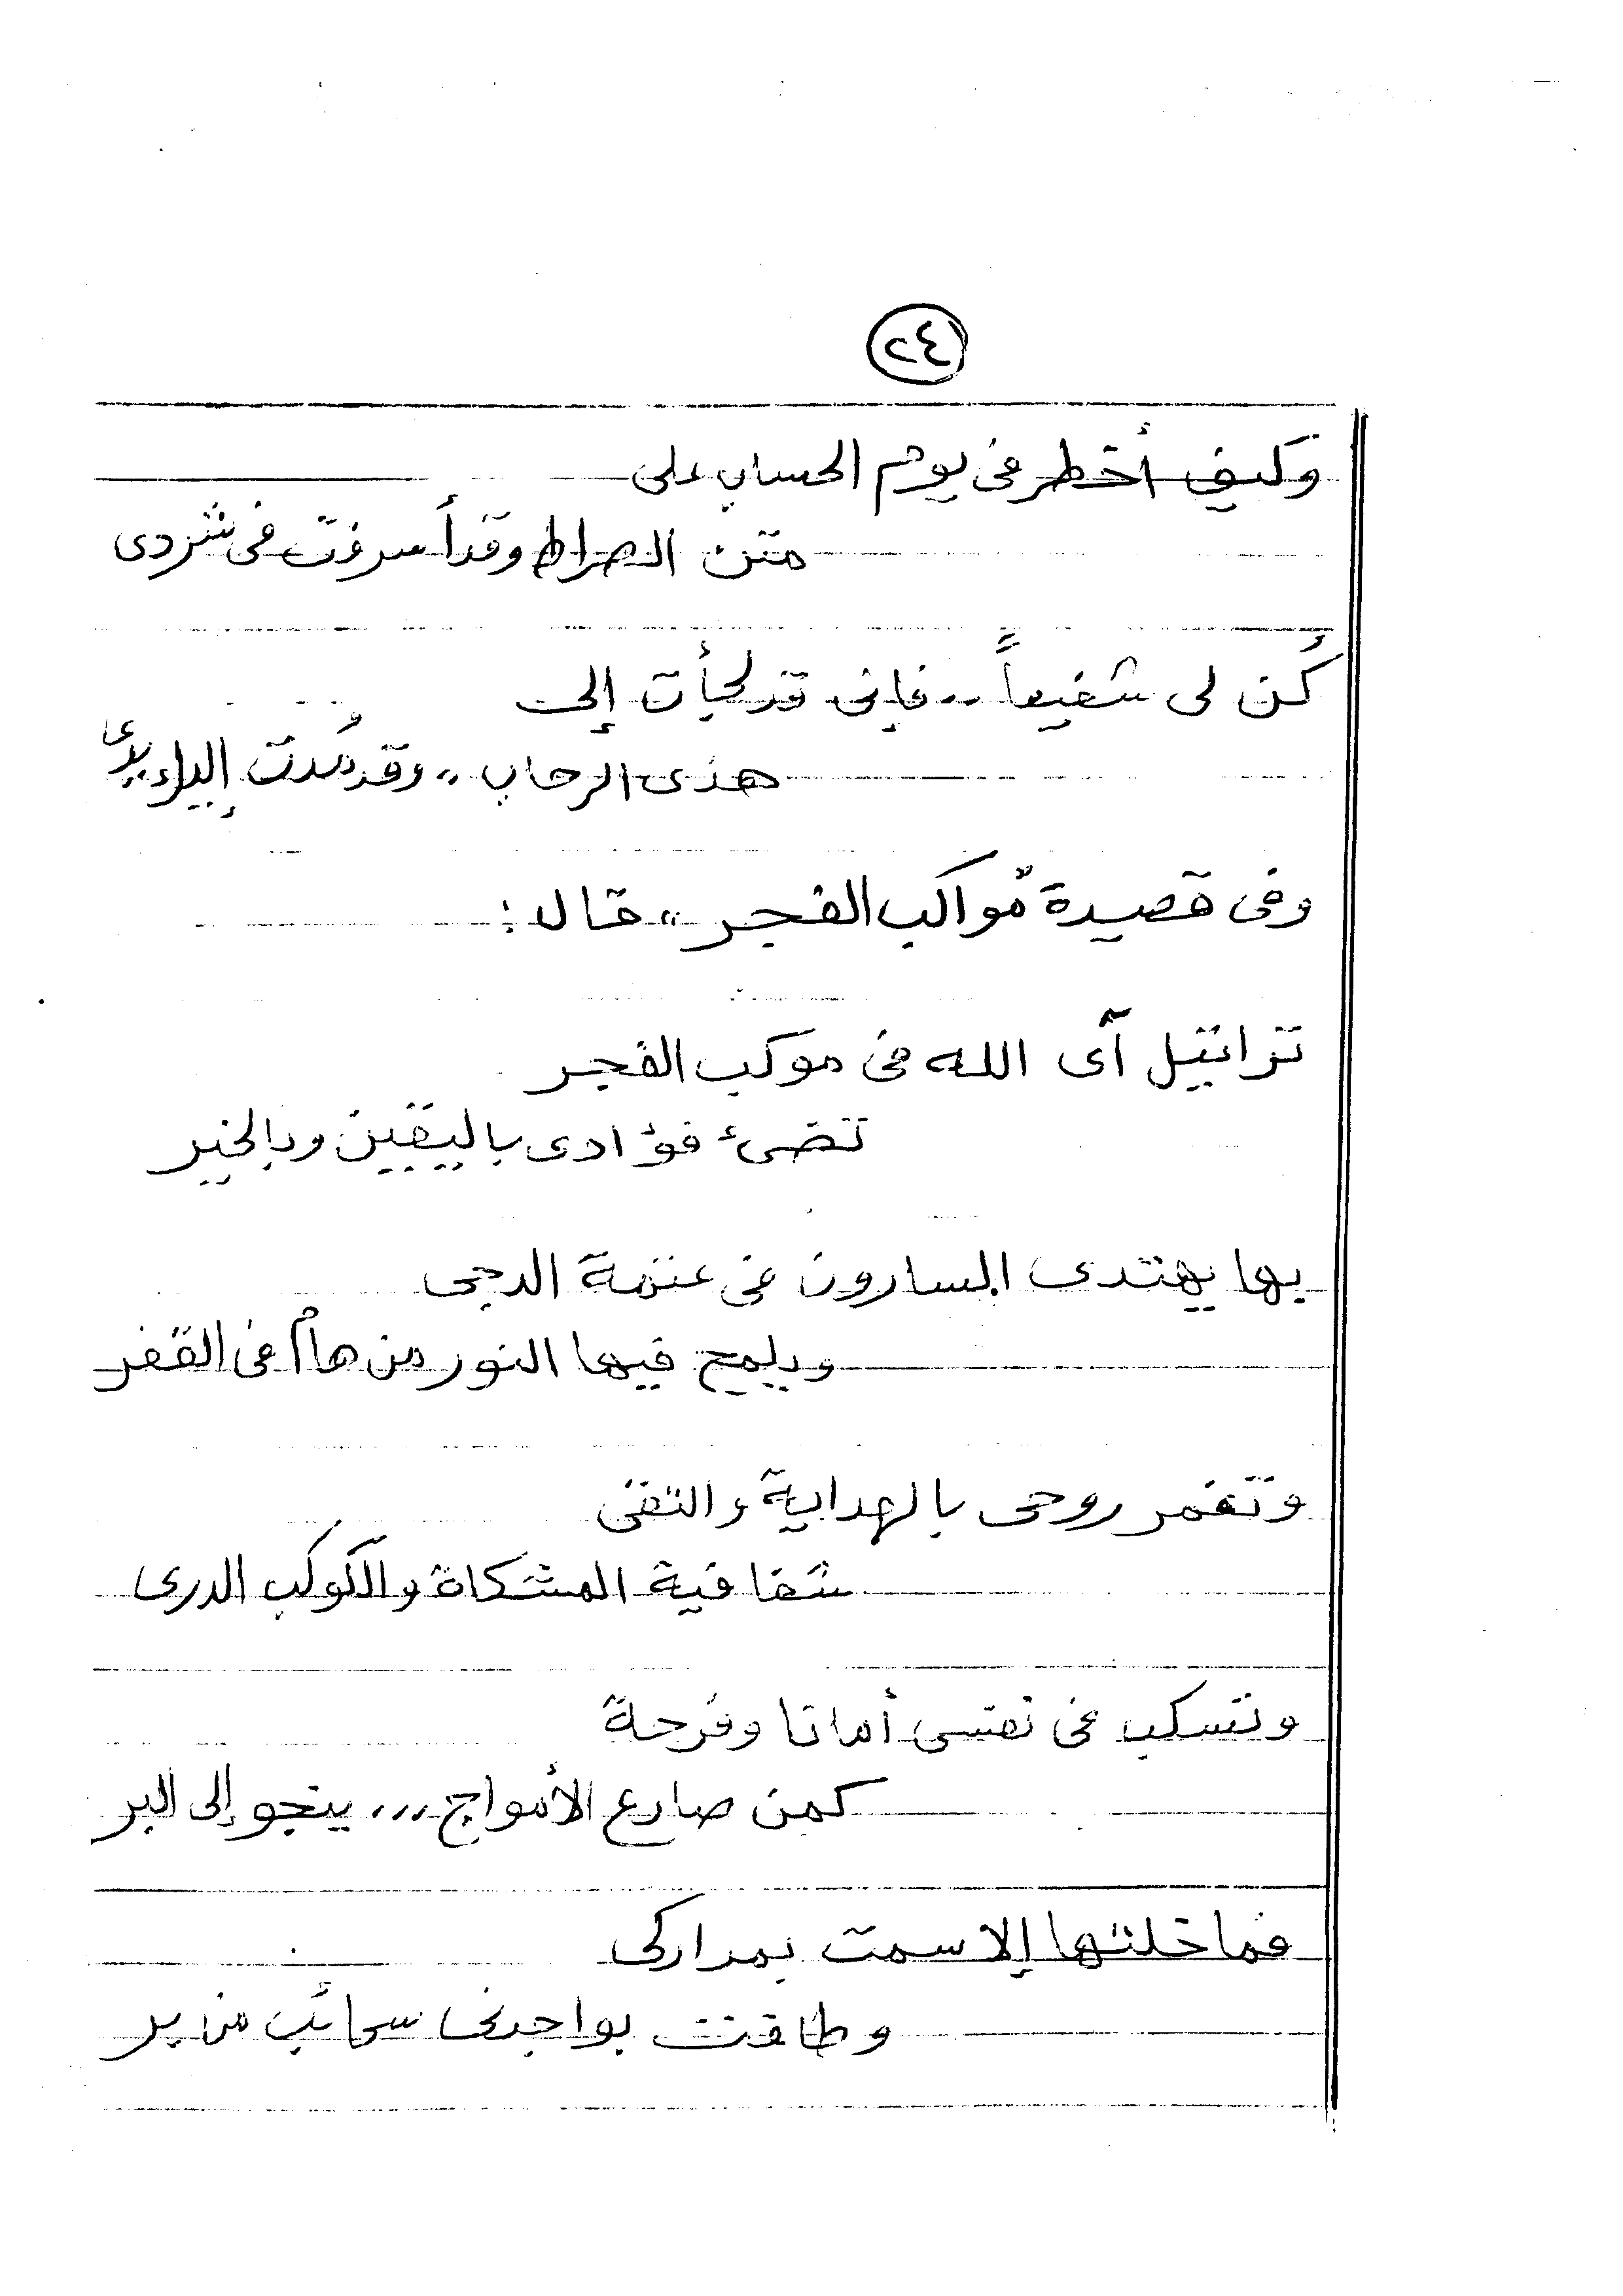 ٢٤
وكيف أخطر فى يوم الحساب على
متن الصراط وقد أسرفت فى شردى
كُن لى شفيعاً .. فإنى قد لجأت إلى
هذى الرحاب .. وقد مُدت إليك يدى
وفى قصيدة "مواكب الفجر" قال :
تراتيل آى الله فى موكب الفجر
تضىء فؤادى باليقين وبالخير
بها يهتدى السارون فى عتمة الدجى
ويلمح فيها النور من هام فى القفر
وتغمر روحى بالهداية والتقى
شفافية المشكاة والكوكب الدرى
وتسكب فى نفسى أمانا وفرحة
كمن صارع الأمواج ... ينجو إلى البر
فما خلتها إلا سمت بمداركى
وطافت بواجدنى سحائب من بر